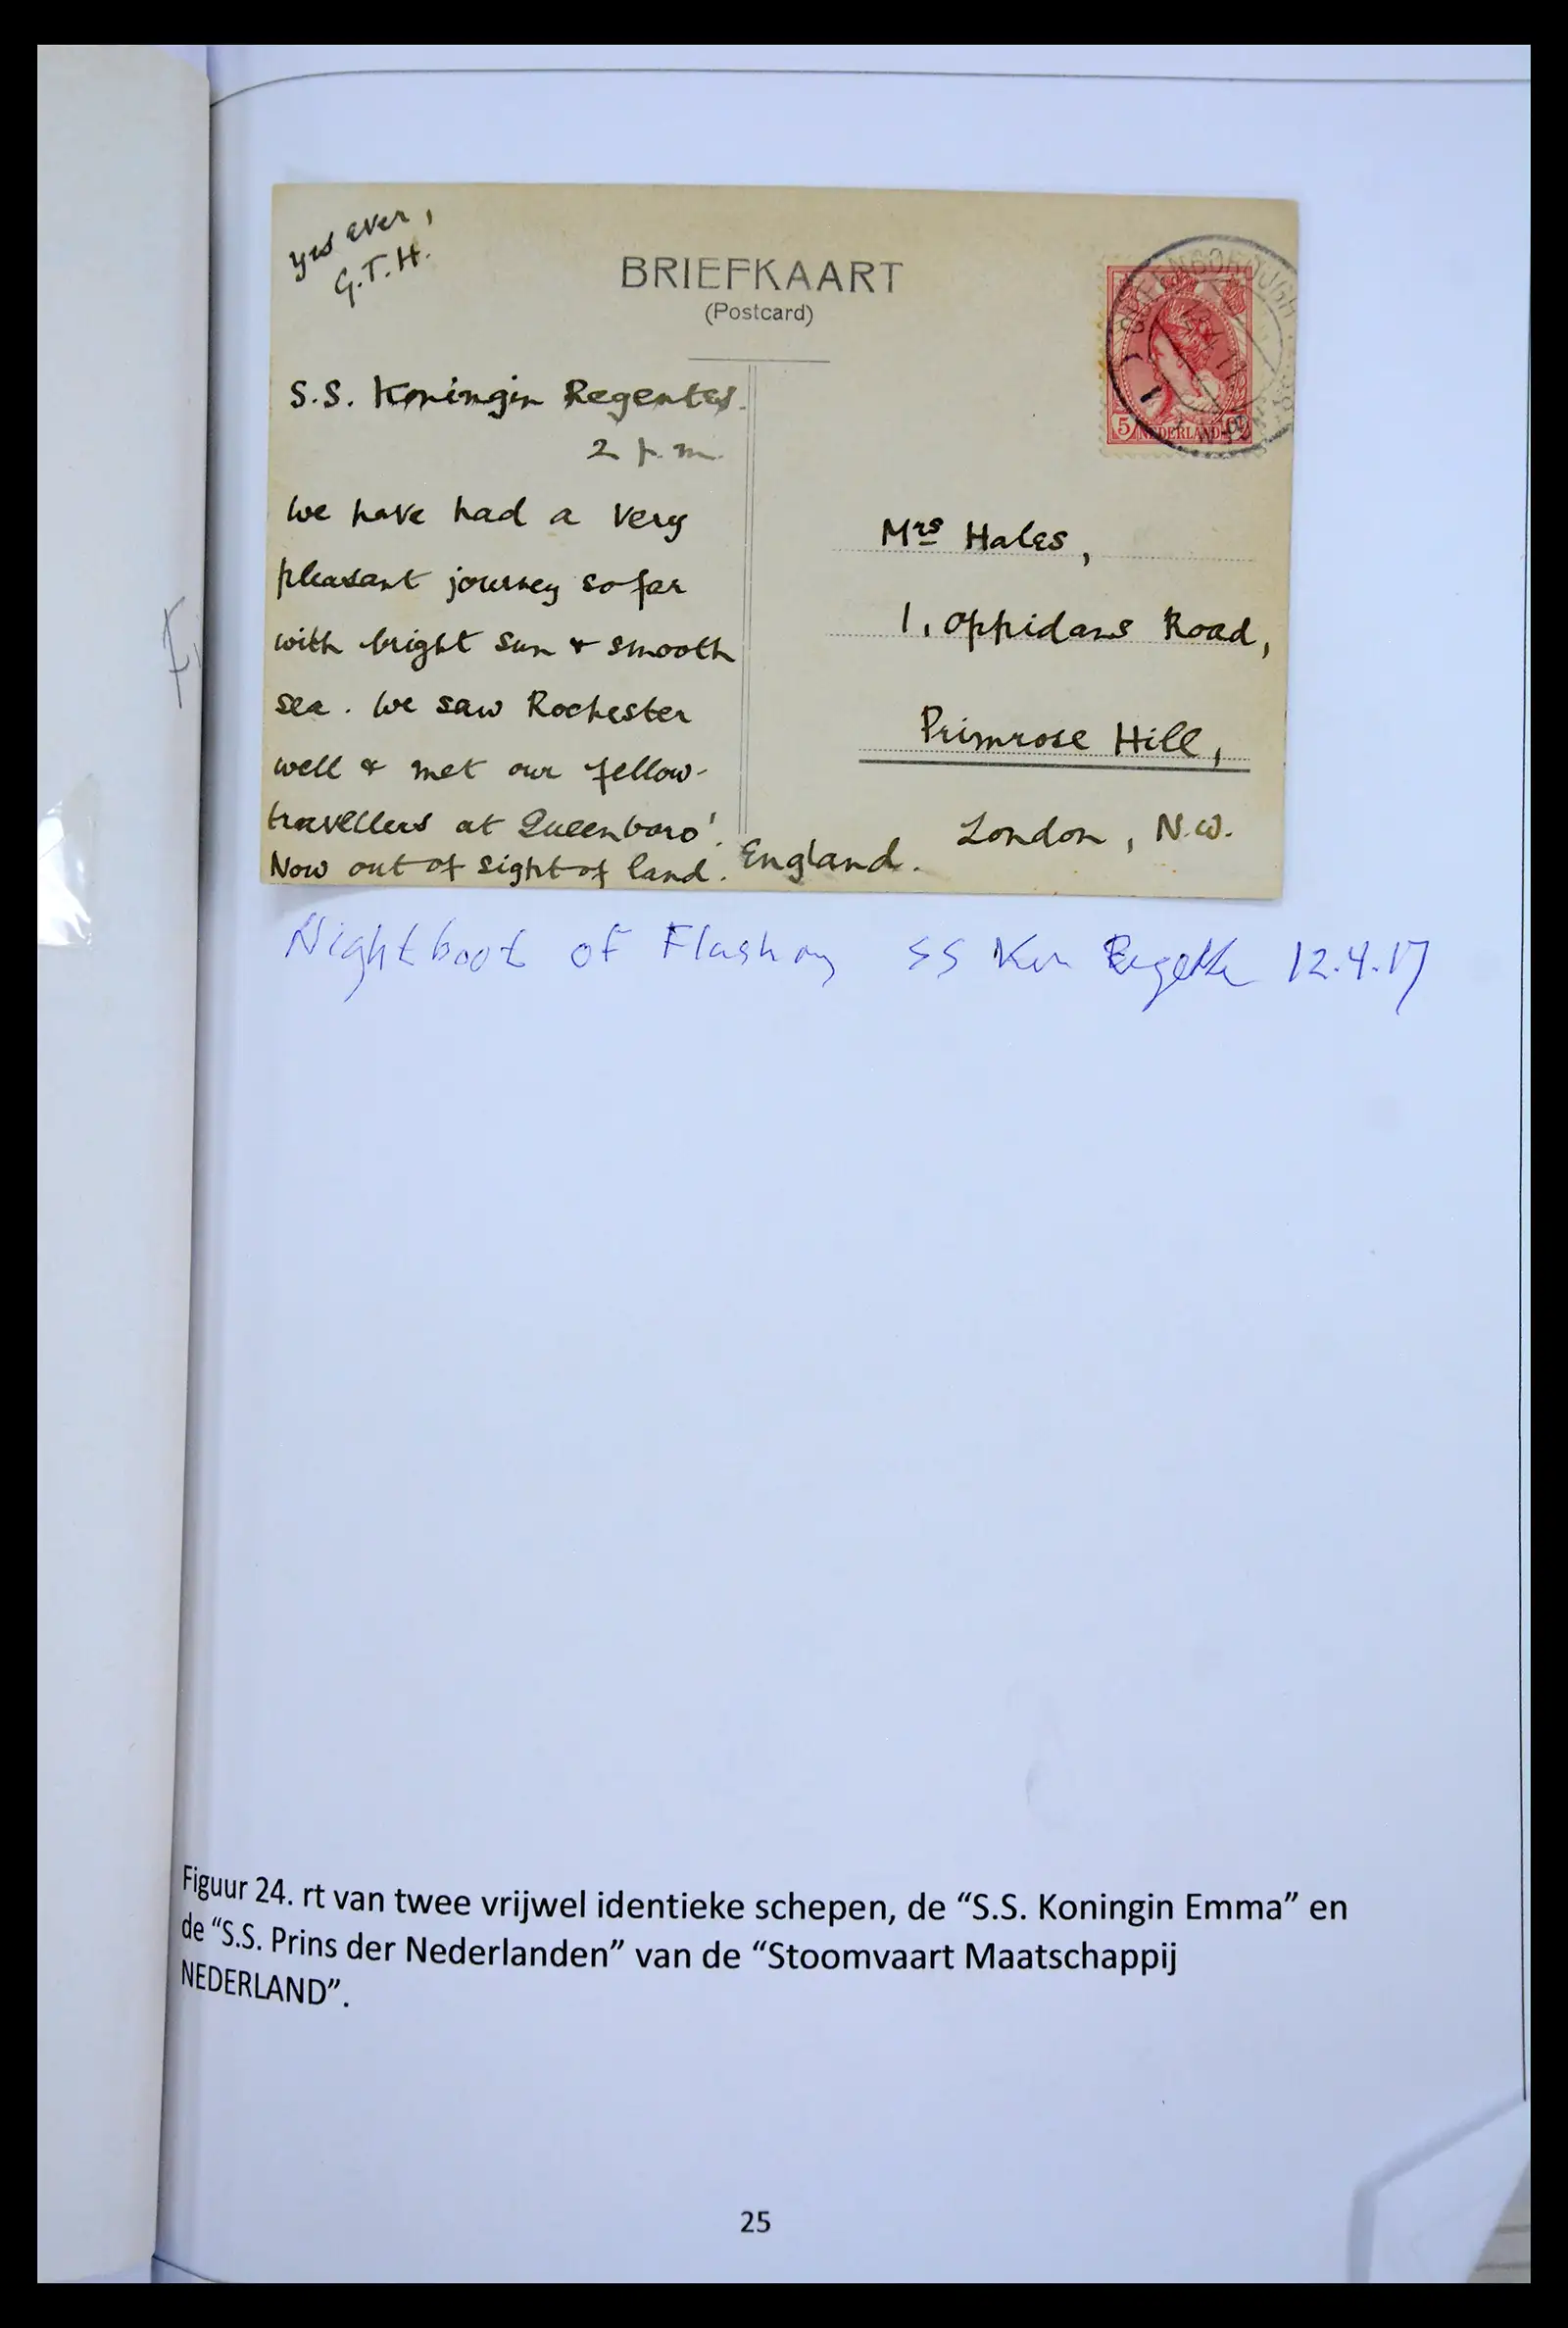 yrs ever,
G.T.H.
BRIEFKAART
(Postcard)
S.S. Koningin Regentes.
2 p.m.
We have had a very
pleasant journey so far
with bright sun & smooth
sea. We saw Rochester
well & met our fellow-
travellers at Queenboro'.
Now out of sight of land.
QUEENBOROUGH
5 NEDERLAND
Mrs Hales,
1, Oppidans Road,
Primrose Hill,
London, N.W.
England.
Nightboot of SS 12.4.17
Figuur 24. rt van twee vrijwel identieke schepen, de “S.S. Koningin Emma” en
de “S.S. Prins der Nederlanden” van de “Stoomvaart Maatschappij
NEDERLAND”.
25